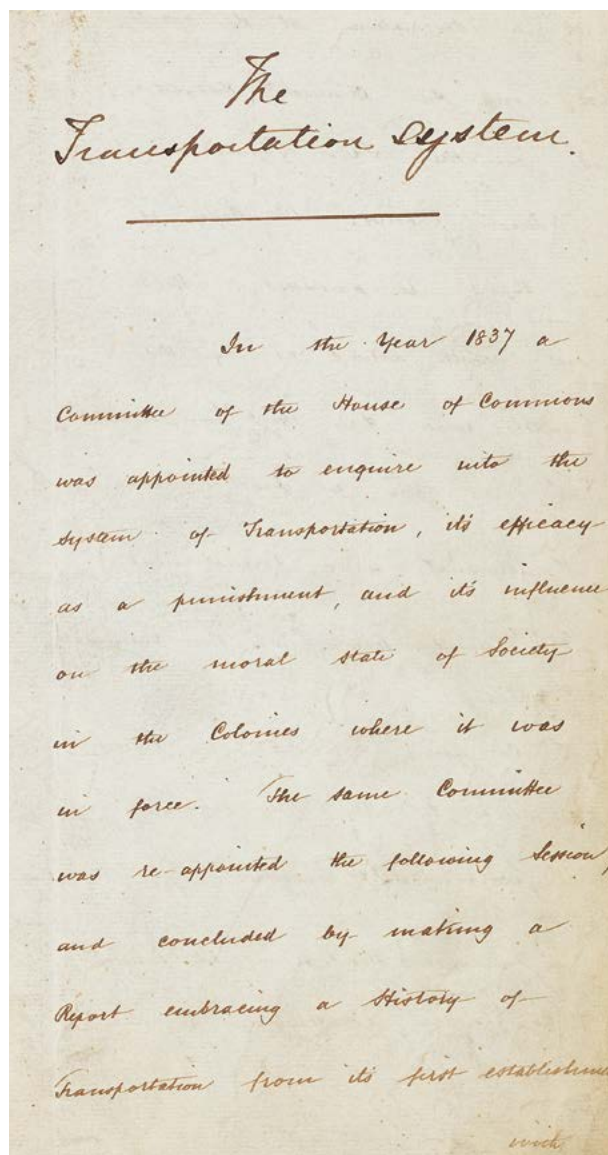 The
Transportation System.
In the Year 1837 a
Committee of the House of Commons
was appointed to enquire into the
System of Transportation, it's efficacy
as a punishment, and it's influence
on the moral state of Society
in the Colonies where it was
in force. The same Committee
was re-appointed the following Session,
and concluded by making a
Report embracing a History of
Transportation from its first establishme
with